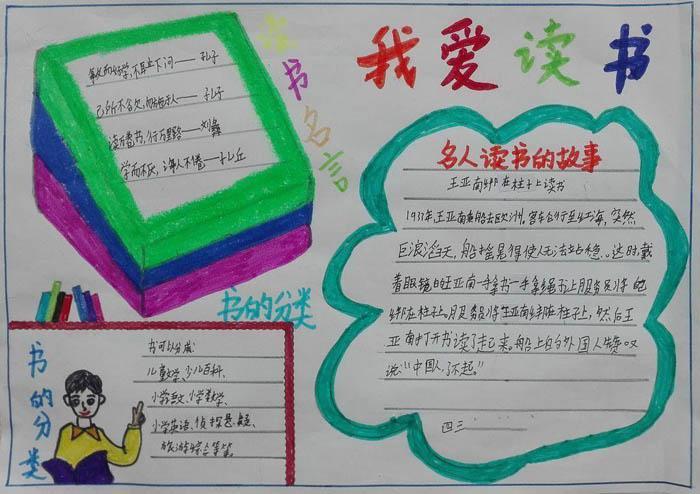 我爱读书
读书名言
敏而好学,不耻下问——孔子
己所不欠,勿施于人——孔子
读万卷书,行万里路——刘彝
学而不厌,诲人不倦——孔丘
书的分类
名人读书的故事
王亚南绑在柱子上读书
1933年王亚南乘船去欧洲。客车行至红海,突然
巨浪滔天,船摇晃得使人无法站稳。这时戴
着眼镜的王亚南一手拿书一手拿绳子上服务员将他
绑在柱子上。服务员将王亚南绑在柱子上,然后王
亚南打开书读了起来。船上的外国人赞叹
说:"中国人,了不起。"
四三
书的分类
书可以分成:
儿童文学、少儿百科、
小学语文、小学数学、
小学英语、侦探悬疑、
旅游综合等等